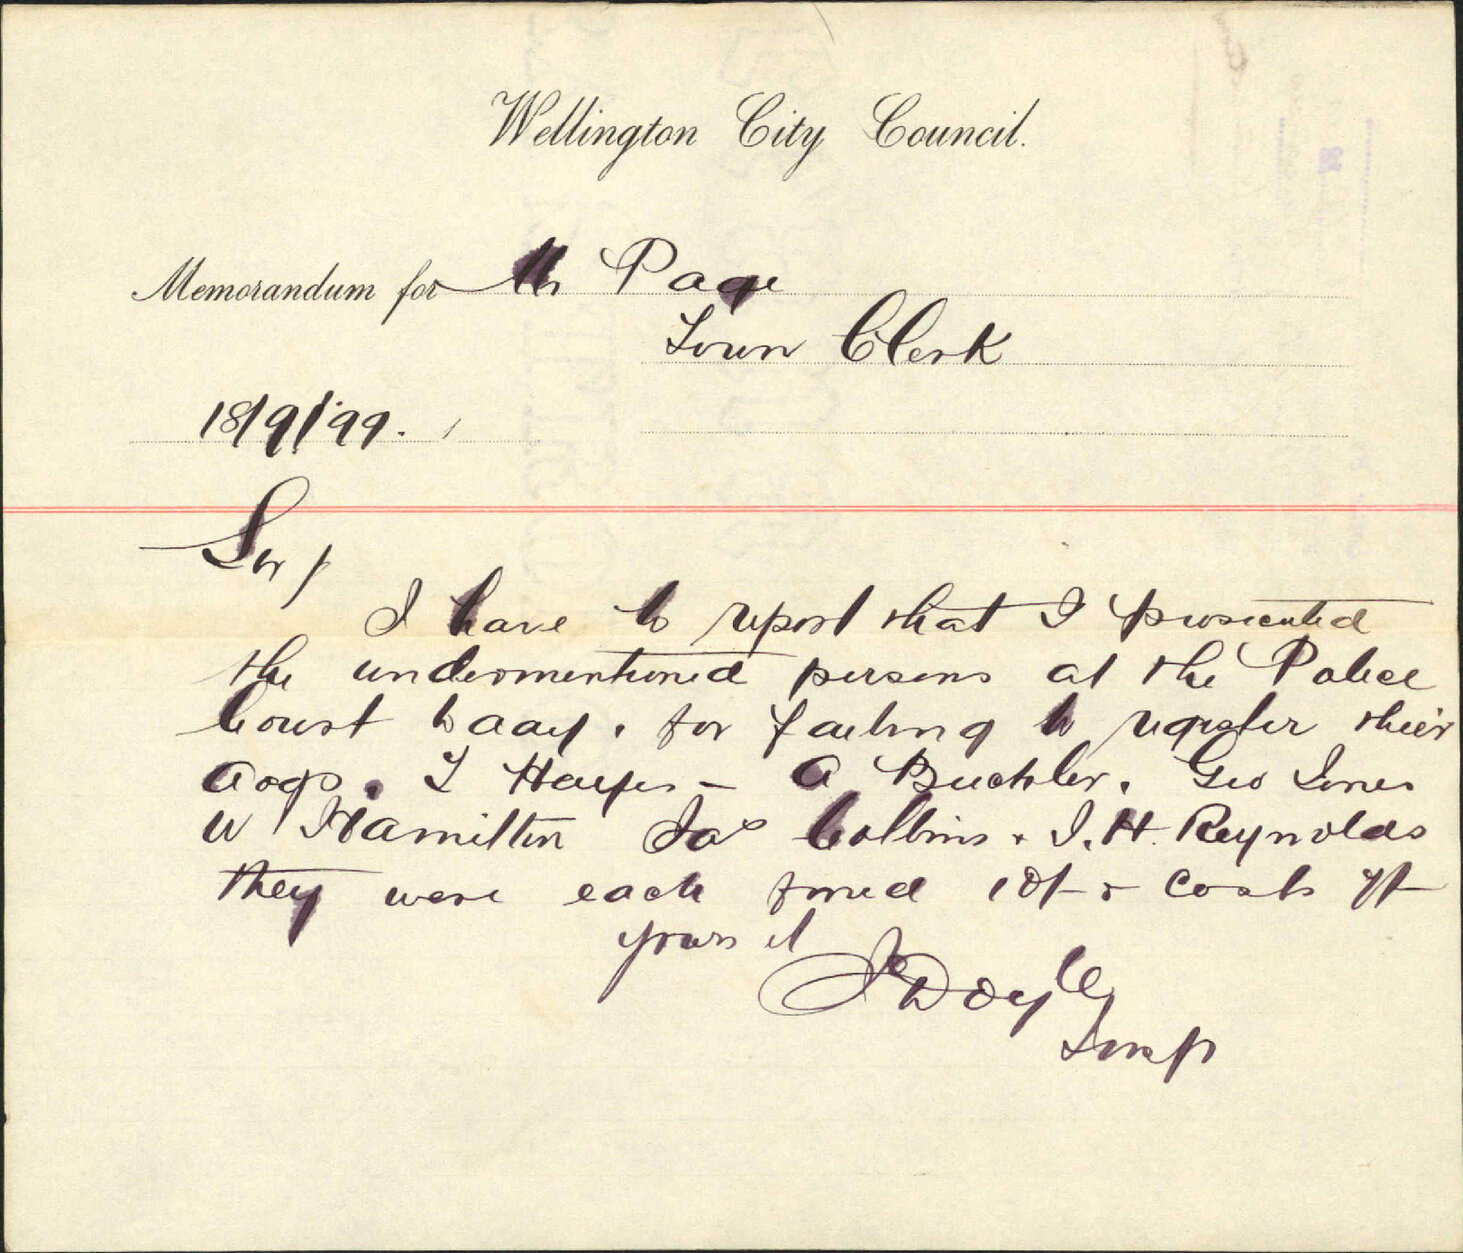 Wellington City Council.
Memorandum for Mr Page
Town Clerk
18/9/99.
Sir/
I have to report that I prosecuted
the undermentioned persons at the Police
Court to day. for failing to register their
dogs. T Hayes - A Buchler. Geo Jones
W Hamilton Jas Collins. J. H. Reynolds
they were each fined 10/- & costs 7/-
yours &
J Doyle
Insp